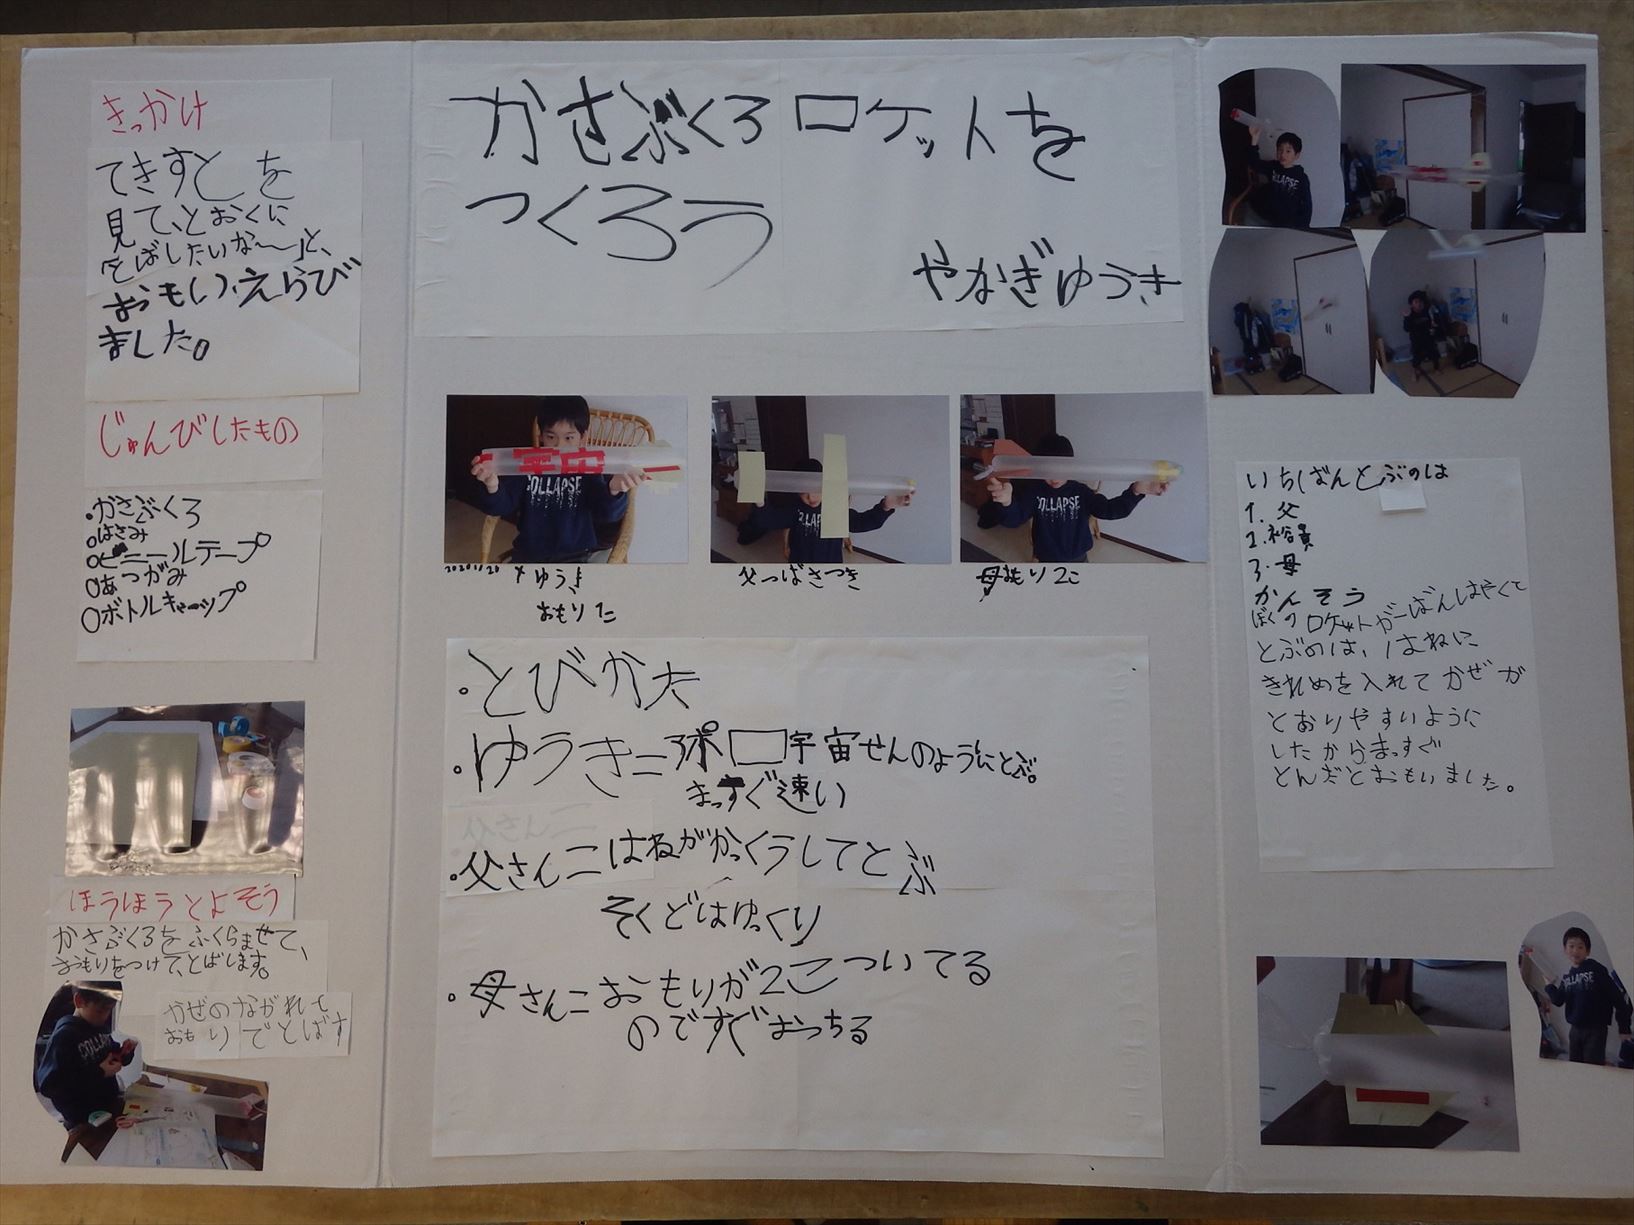 かさぶくろロケットを
つくろう
やなぎゆうき
きっかけ
てきすとを
見て、とおくに
とばしたいな〜」と、
おもい、えらび
ました。
じゅんびしたもの
・かさぶくろ
○はさみ
○ビニールテープ
○あつがみ
○ボトルキャップ
ほうほうとよそう
かさぶくろをふくらませて、
おもりをつけて、とばします。
かぜのながれと
おもりでとばす
宇宙
COLLAPSE
ゆうき
おもり
COLLAPSE
父つばさつき
COLLAPSE
母おもり2こ
・とびかた
・ゆうき=
宇宙せんのようにとぶ。
まっすぐ速い
・父さん=はねがかっくうしてとぶ
そくどはゆっくり
・母さん=おもりが2こついてる
のですぐおっちる
COLLAPSE
いちばんとぶのは
1. 父
2.
3. 母
かんそう
ぼくのロケットが一ばんはやくて
とぶのは、はねに
きれめを入れてかぜが
とおりやすいように
したからまっすぐ
とんだとおもいました。
COLLAPSE
COLLAPSE